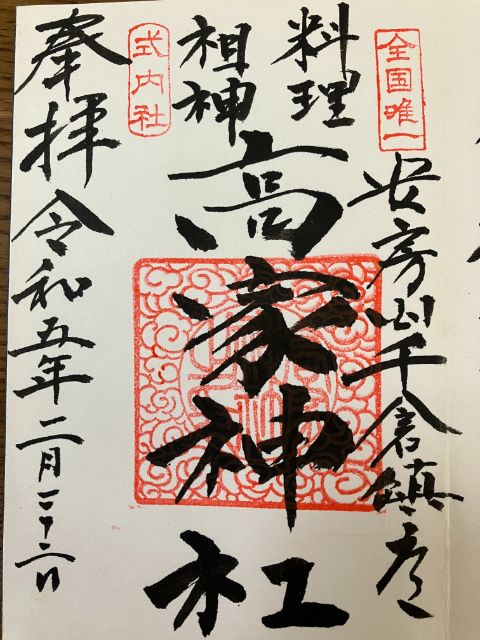 全国唯一
安房国千倉鎮座
料理
祖神
高家神社
式内社
奉拝
令和五年二月二十日